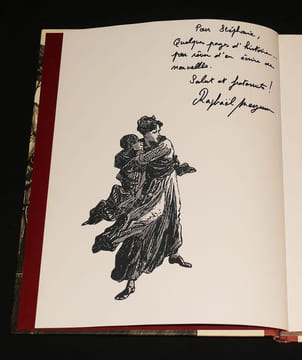 Pour Stéphanie,
Quelques pages d'histoire
pour rêver d'en écrire de
nouvelles.
Salut et fraternité !
Raphaël Meyssan